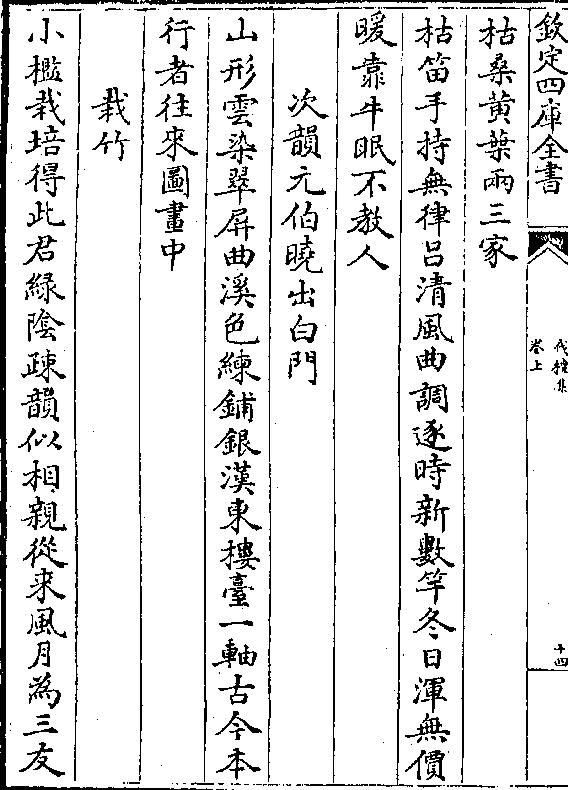 欽定四庫全書
伐檀集
卷上
十四
枯桑黄葉兩三家
枯笛手持無律吕清風曲調逐時新數竿冬日渾無價
暖靠牛眠不教人
次韻元伯曉出白門
山形雲染翠屏曲溪色練鋪銀漢東樓臺一軸古今本
行者往來圖畫中
栽竹
小檻栽培得此君緑陰疎韻似相親從来風月為三友